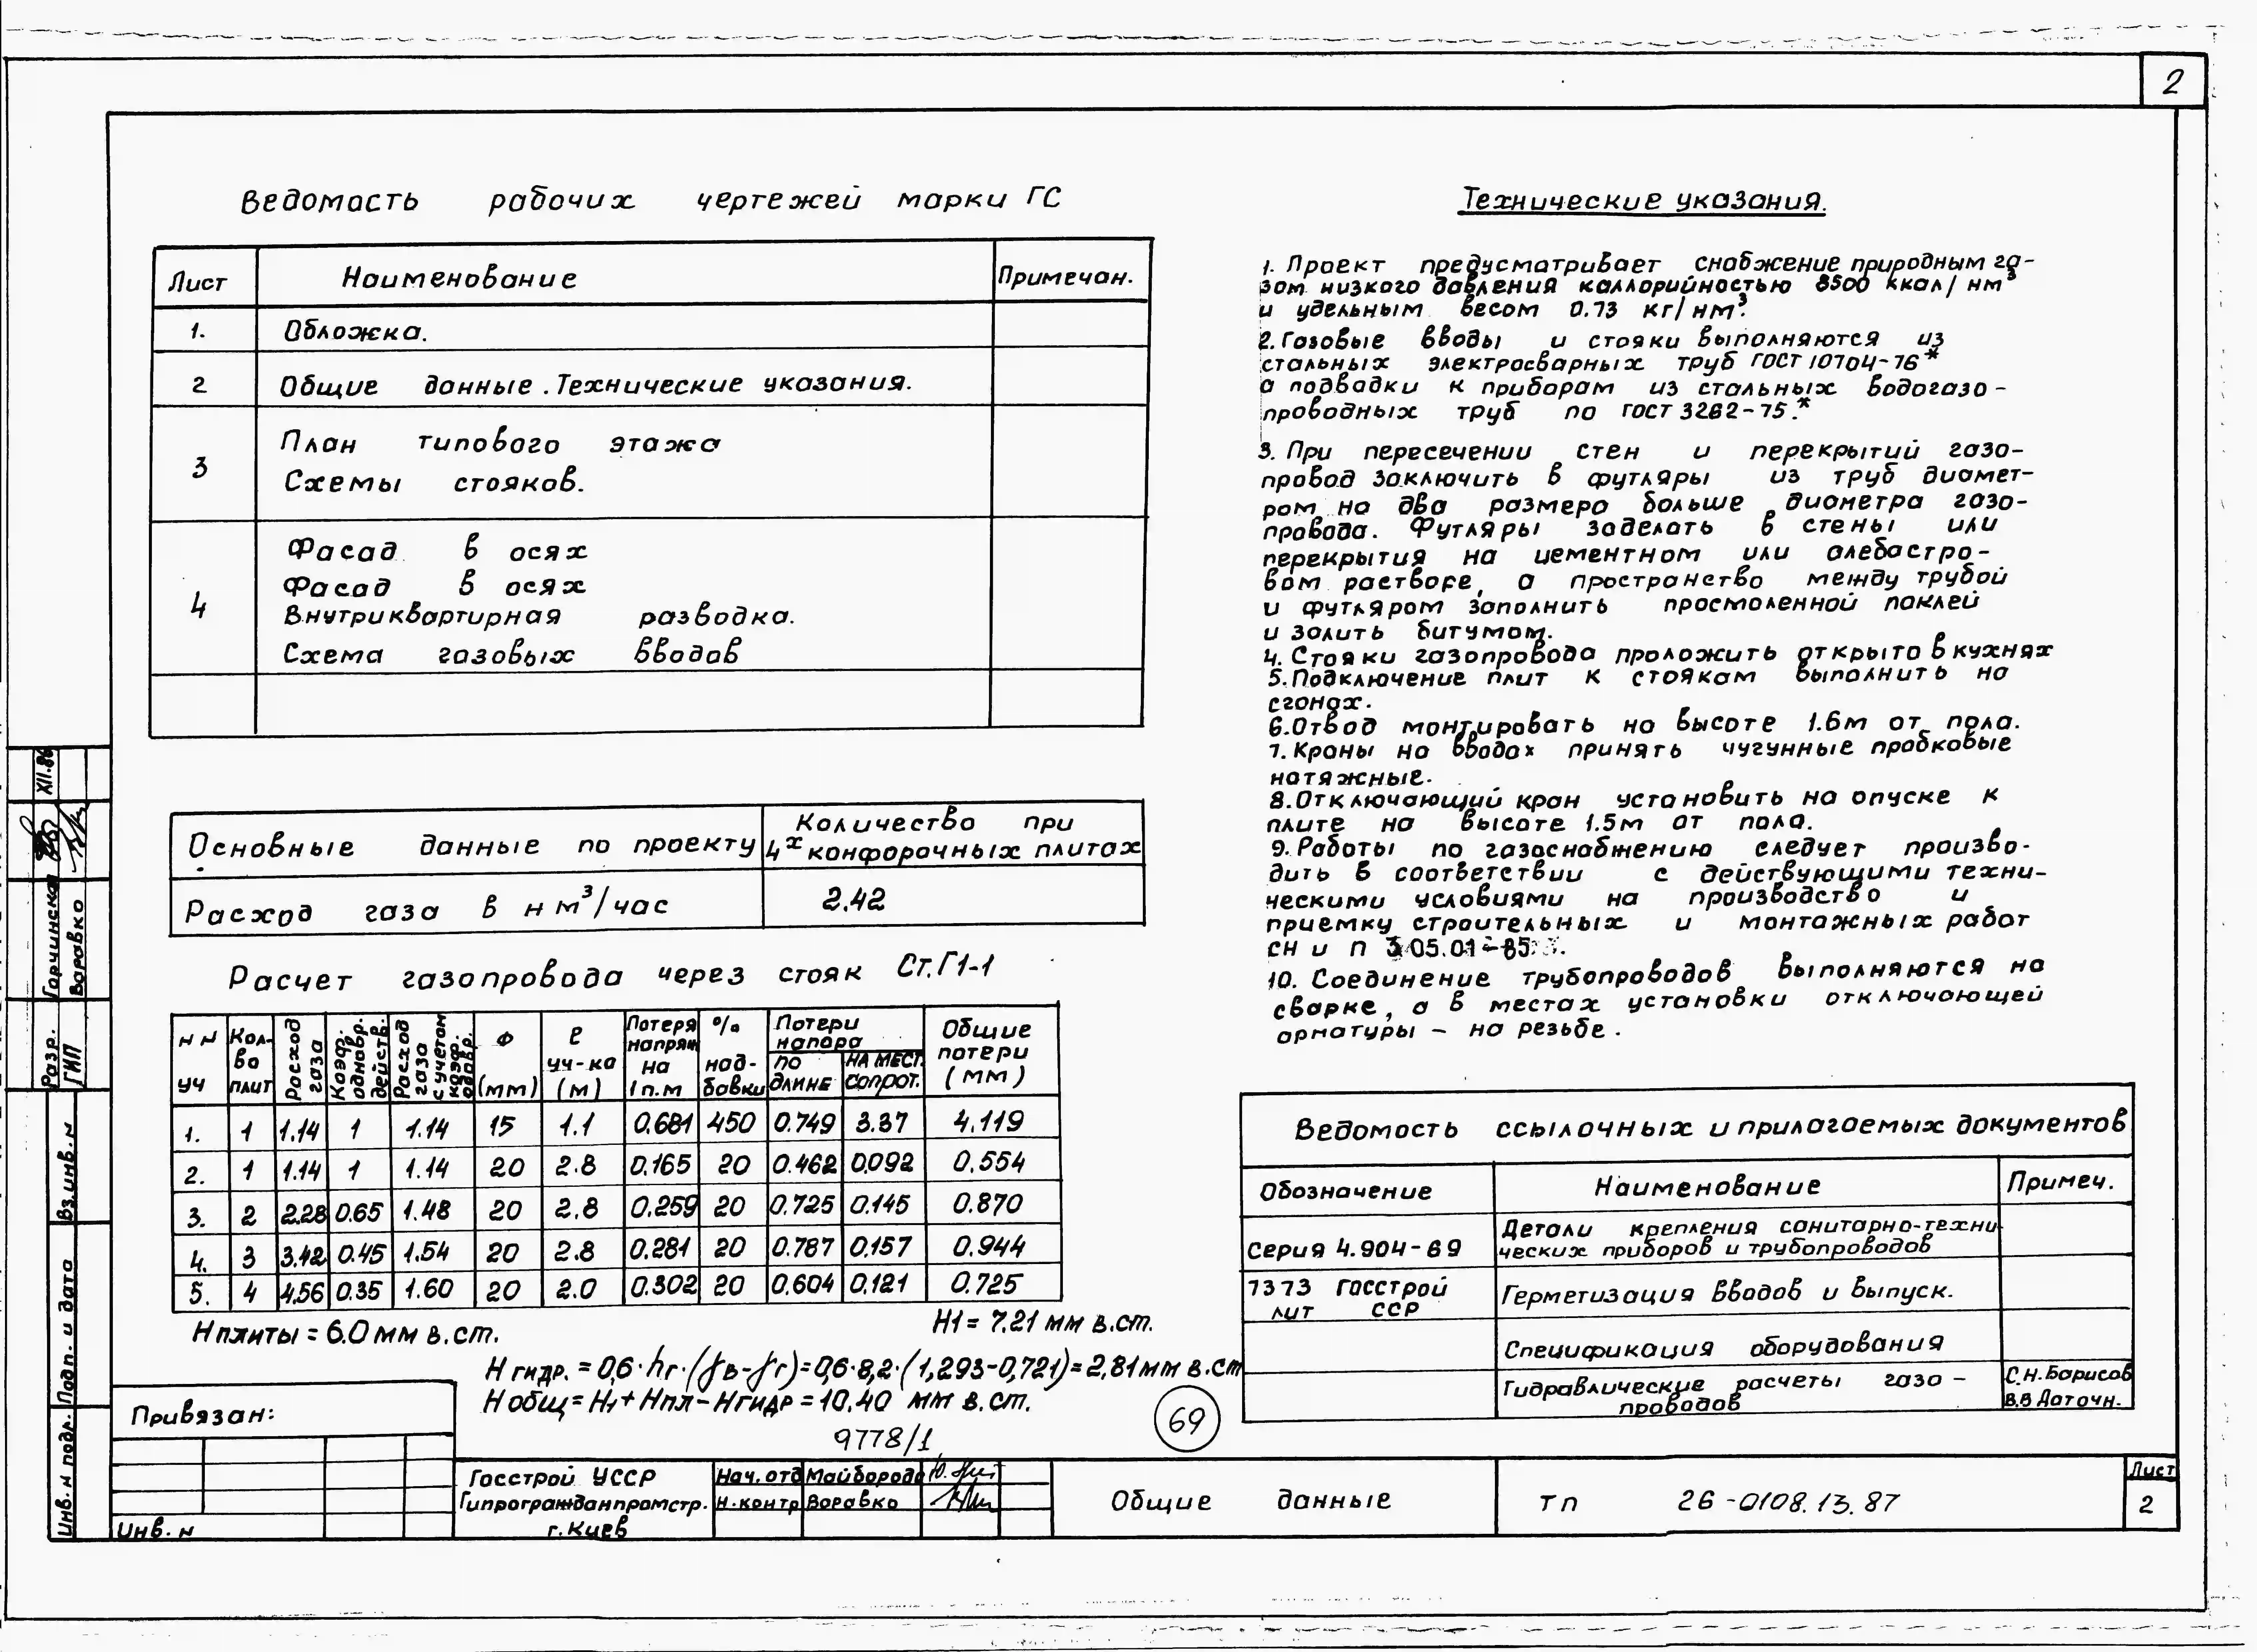 2
Ведомость рабочих чертежей марки ГС
Лист Наименование Примечан.
1. Обложка.
2 Общие данные. Технические указания.
3 План типового этажа
Схемы стояков.
4 Фасад в осях
Фасад в осях
Внутриквартирная разводка.
Схема газовых вводов
Основные данные по проекту Количество при
4х конфорочных плитах
Расход газа в нм³/час 2.42
Расчет газопровода через стояк Ст.Г1-1
NN уч Кол-во плит Расход газа Коэф. одновр. действ. Расход газа с учетом коэф. одовр. Ф (мм) ℓ уч-ка (м) Потеря напряж на 1п.м % надбавки Потери напора по длине на мест. сопрот. Общие потери (мм)
1. 1 1.14 1 1.14 15 1.1 0.681 450 0.749 3.37 4.119
2. 1 1.14 1 1.14 20 2.8 0.165 20 0.462 0.092 0.554
3. 2 2.28 0.65 1.48 20 2.8 0.259 20 0.725 0.145 0.870
4. 3 3.42 0.45 1.54 20 2.8 0.281 20 0.787 0.157 0.944
5. 4 4.56 0.35 1.60 20 2.0 0.302 20 0.604 0.121 0.725
Нплиты = 6.0 мм в.ст. Н1 = 7.21 мм в.ст.
Н гидр. = 0,6·hг·(γв-γг)=0,6·8,2·(1,293-0,721)=2,81мм в.ст
Н общ = Н1 + Нпл - Нгидр = 10,40 мм в.ст.
9778/1
69
Технические указания.
1. Проект предусматривает снабжение природным га-
зом низкого давления каллорийностью 8500 ккал/нм³
и удельным весом 0.73 кг/нм³.
2. Газовые вводы и стояки выполняются из
стальных электросварных труб ГОСТ 10704-76*
а подводки к приборам из стальных водогазо-
проводных труб по гост 3262-75.*
3. При пересечении стен и перекрытий газо-
провод заключить в футляры из труб диамет-
ром на два размера больше диаметра газо-
провода. Футляры заделать в стены или
перекрытия на цементном или алебастро-
вом растворе, а пространство между трубой
и футляром заполнить просмоленной паклей
и залить битумом.
4. Стояки газопровода проложить открыто в кухнях
5. Подключение плит к стоякам выполнить на
сгонах.
6. Отвод монтировать на высоте 1.6м от пола.
7. Краны на вводах принять чугунные пробковые
натяжные.
8. Отключающий кран установить на опуске к
плите на высоте 1.5м от пола.
9. Работы по газоснабжению следует произво-
дить в соответствии с действующими техни-
ческими условиями на производство и
приемку строительных и монтажных работ
СН и П 3.05.01-85.
10. Соединение трубопроводов выполняются на
сварке, а в местах установки отключающей
арматуры – на резьбе.
Ведомость ссылочных и прилагаемых документов
Обозначение Наименование Примеч.
Серия 4.904-69 Детали крепления санитарно-техни-
ческих приборов и трубопроводов
7373 госстрой
лит ССР Герметизация вводов и выпуск.
Спецификация оборудования
Гидравлические расчеты газо-
проводов С.Н.Борисов
В.В Даточн.
XII.86
Горчинская
Воравко
Разр.
ГИП
Вз.инв.N
Подп. и дата
Инв.N подл.
Привязан:
Инв. N
Госстрой УССР
Гипрогражданпромстр.
г. Киев
Нач. отд Майборода
Н.контр Воравко
Общие данные
тп 26-0108.13.87
Лист
2